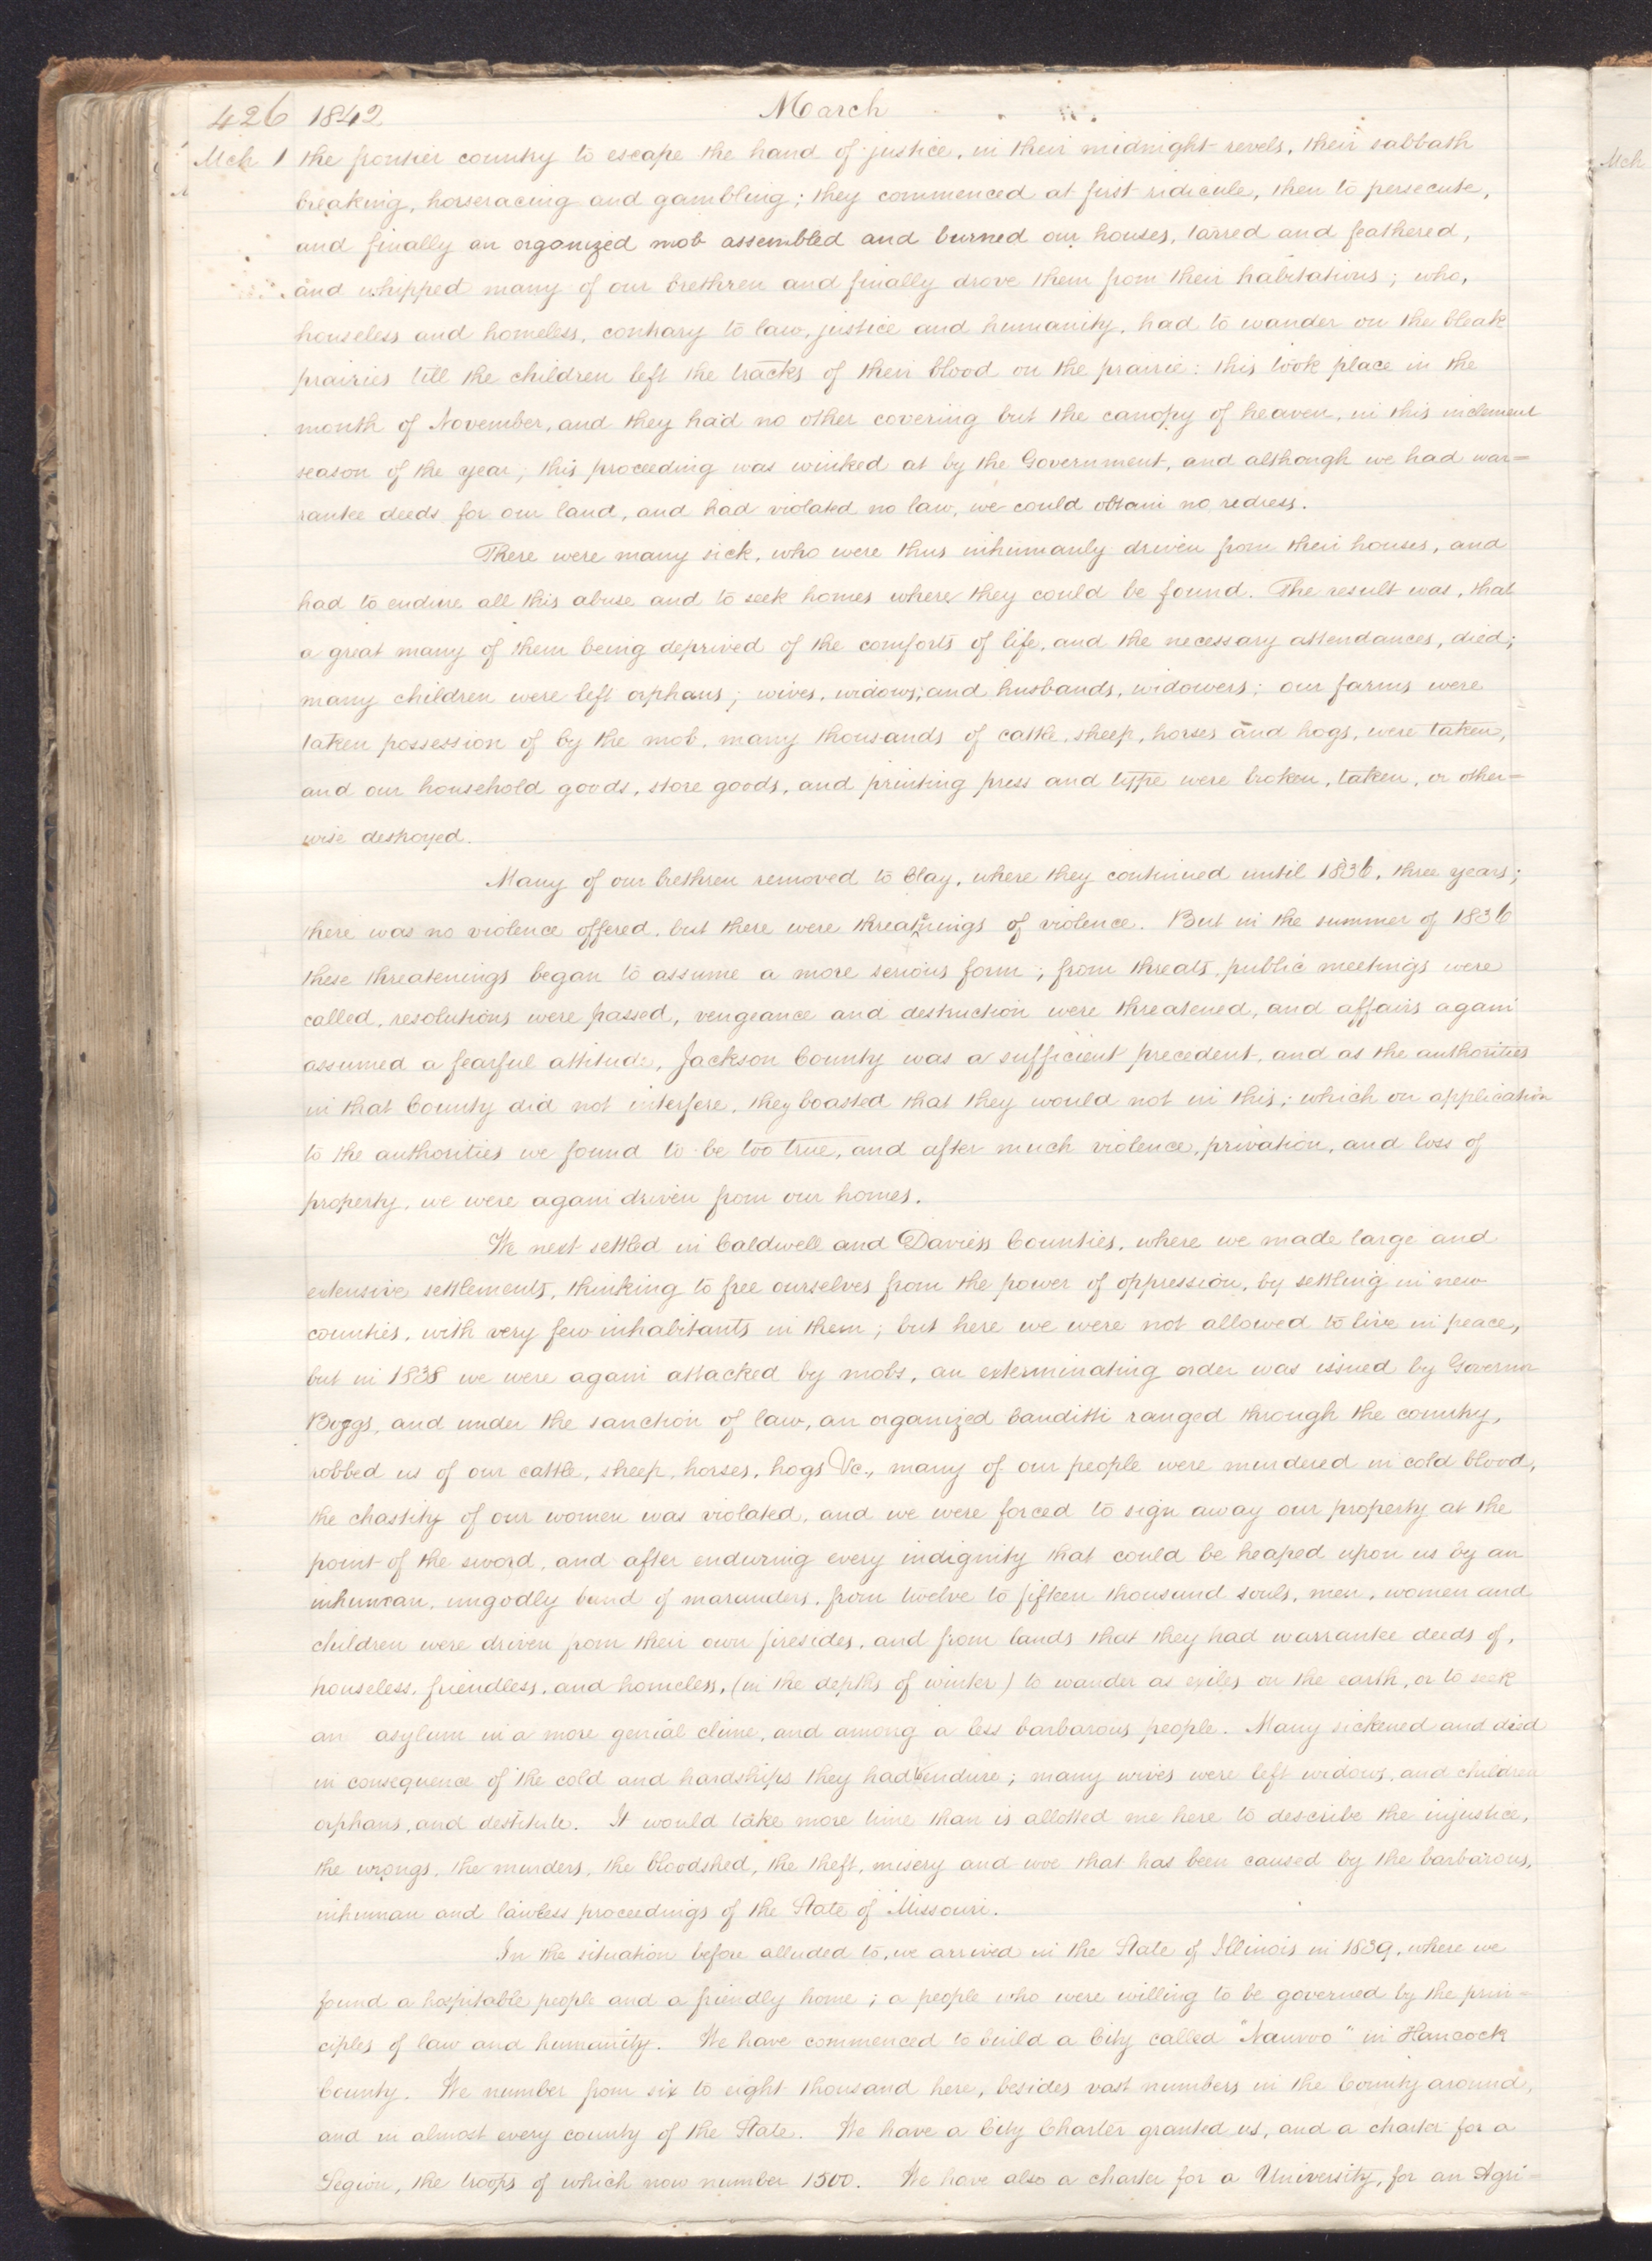 426 1842 March
Mch 1 the frontier country to escape the hand of justice, in their midnight revels, their sabbath
breaking, horseracing and gambling; they commenced at first ridicule, then to persecute,
and finally an organized mob assembled and burned our houses, tarred and feathered,
and whipped many of our brethren and finally drove them from their habitations; who,
houseless and homeless, contrary to law, justice and humanity, had to wander on the bleak
prairies till the children left the tracks of their blood on the prairie: this took place in the
month of November, and they had no other covering but the canopy of heaven, in this inclement
season of the year; this proceeding was winked at by the Government, and although we had war=
rantee deeds for our land, and had violated no law, we could obtain no redress.
There were many sick, who were thus inhumanly driven from their houses, and
had to endure all this abuse and to seek homes where they could be found. The result was, that
a great many of them being deprived of the comforts of life, and the necessary attendances, died;
many children were left orphans; wives, widows; and husbands, widowers; our farms were
taken possession of by the mob, many thousands of cattle, sheep, horses and hogs, were taken,
and our household goods, store goods, and printing press and type were broken, taken, or other=
wise destroyed.
Many of our brethren removed to Clay, where they continued until 1836, three years;
there was no violence offered, but there were threatnings of violence. But in the summer of 1836
these threatenings began to assume a more serious form; from threats, public meetings were
called, resolutions were passed, vengeance and destruction were threatened, and affairs again
assumed a fearful attitude, Jackson County was a sufficient precedent, and as the authorities
in that County did not interfere, they boasted that they would not in this; which on application
to the authorities we found to be too true, and after much violence, privation, and loss of
property, we were again driven from our homes.
We next settled in Caldwell and Daviess Counties, where we made large and
extensive settlements, thinking to free ourselves from the power of oppression, by settling in new
counties, with very few inhabitants in them; but here we were not allowed to live in peace,
but in 1838 we were again attacked by mobs, an exterminating order was issued by Governor
Boggs, and under the sanction of law, an organized banditti ranged through the country,
robbed us of our cattle, sheep, horses, hogs &c., many of our people were murdered in cold blood,
the chastity of our women was violated, and we were forced to sign away our property at the
point of the sword, and after enduring every indignity that could be heaped upon us by an
inhuman, ungodly band of marauders, from twelve to fifteen thousand souls, men, women and
children were driven from their own firesides, and from lands that they had warrantee deeds of,
houseless, friendless, and homeless, (in the depths of winter) to wander as exiles on the earth, or to seek
an asylum in a more genial clime, and among a less barbarous people. Many sickened and died
in consequence of the cold and hardships they had to endure; many wives were left widows, and children
orphans, and destitute. It would take more time than is allotted me here to describe the injustice,
the wrongs, the murders, the bloodshed, the theft, misery and woe that has been caused by the barbarous,
inhuman and lawless proceedings of the State of Missouri.
In the situation before alluded to, we arrived in the State of Illinois in 1839, where we
found a hospitable people and a friendly home; a people who were willing to be governed by the prin=
ciples of law and humanity. We have commenced to build a City called "Nauvoo" in Hancock
County. We number from six to eight thousand here, besides vast numbers in the County around,
and in almost every county of the State. We have a City Charter granted us, and a charter for a
Legion, the troops of which now number 1500. We have also a charter for a University, for an Agri=
Mch